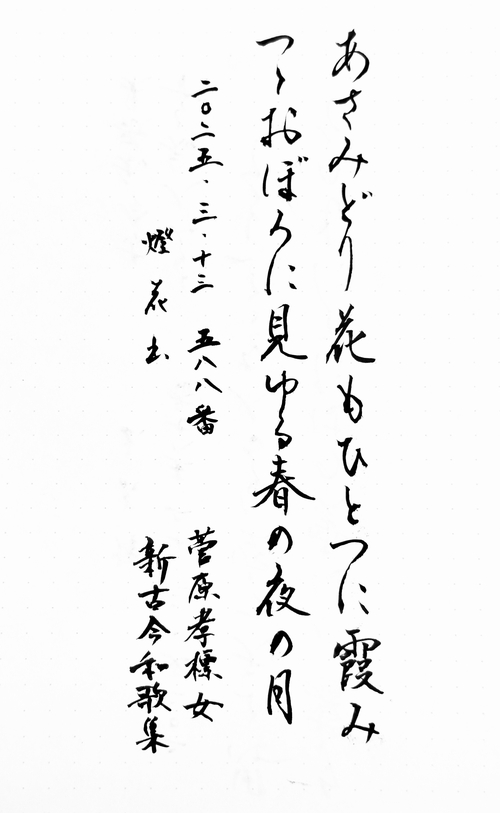 あさみどり花もひとつに霞み
つゝおぼろに見ゆる春の夜の月
二〇二五．三．十三 五八八番
菅原孝標女
燈花
新古今和歌集